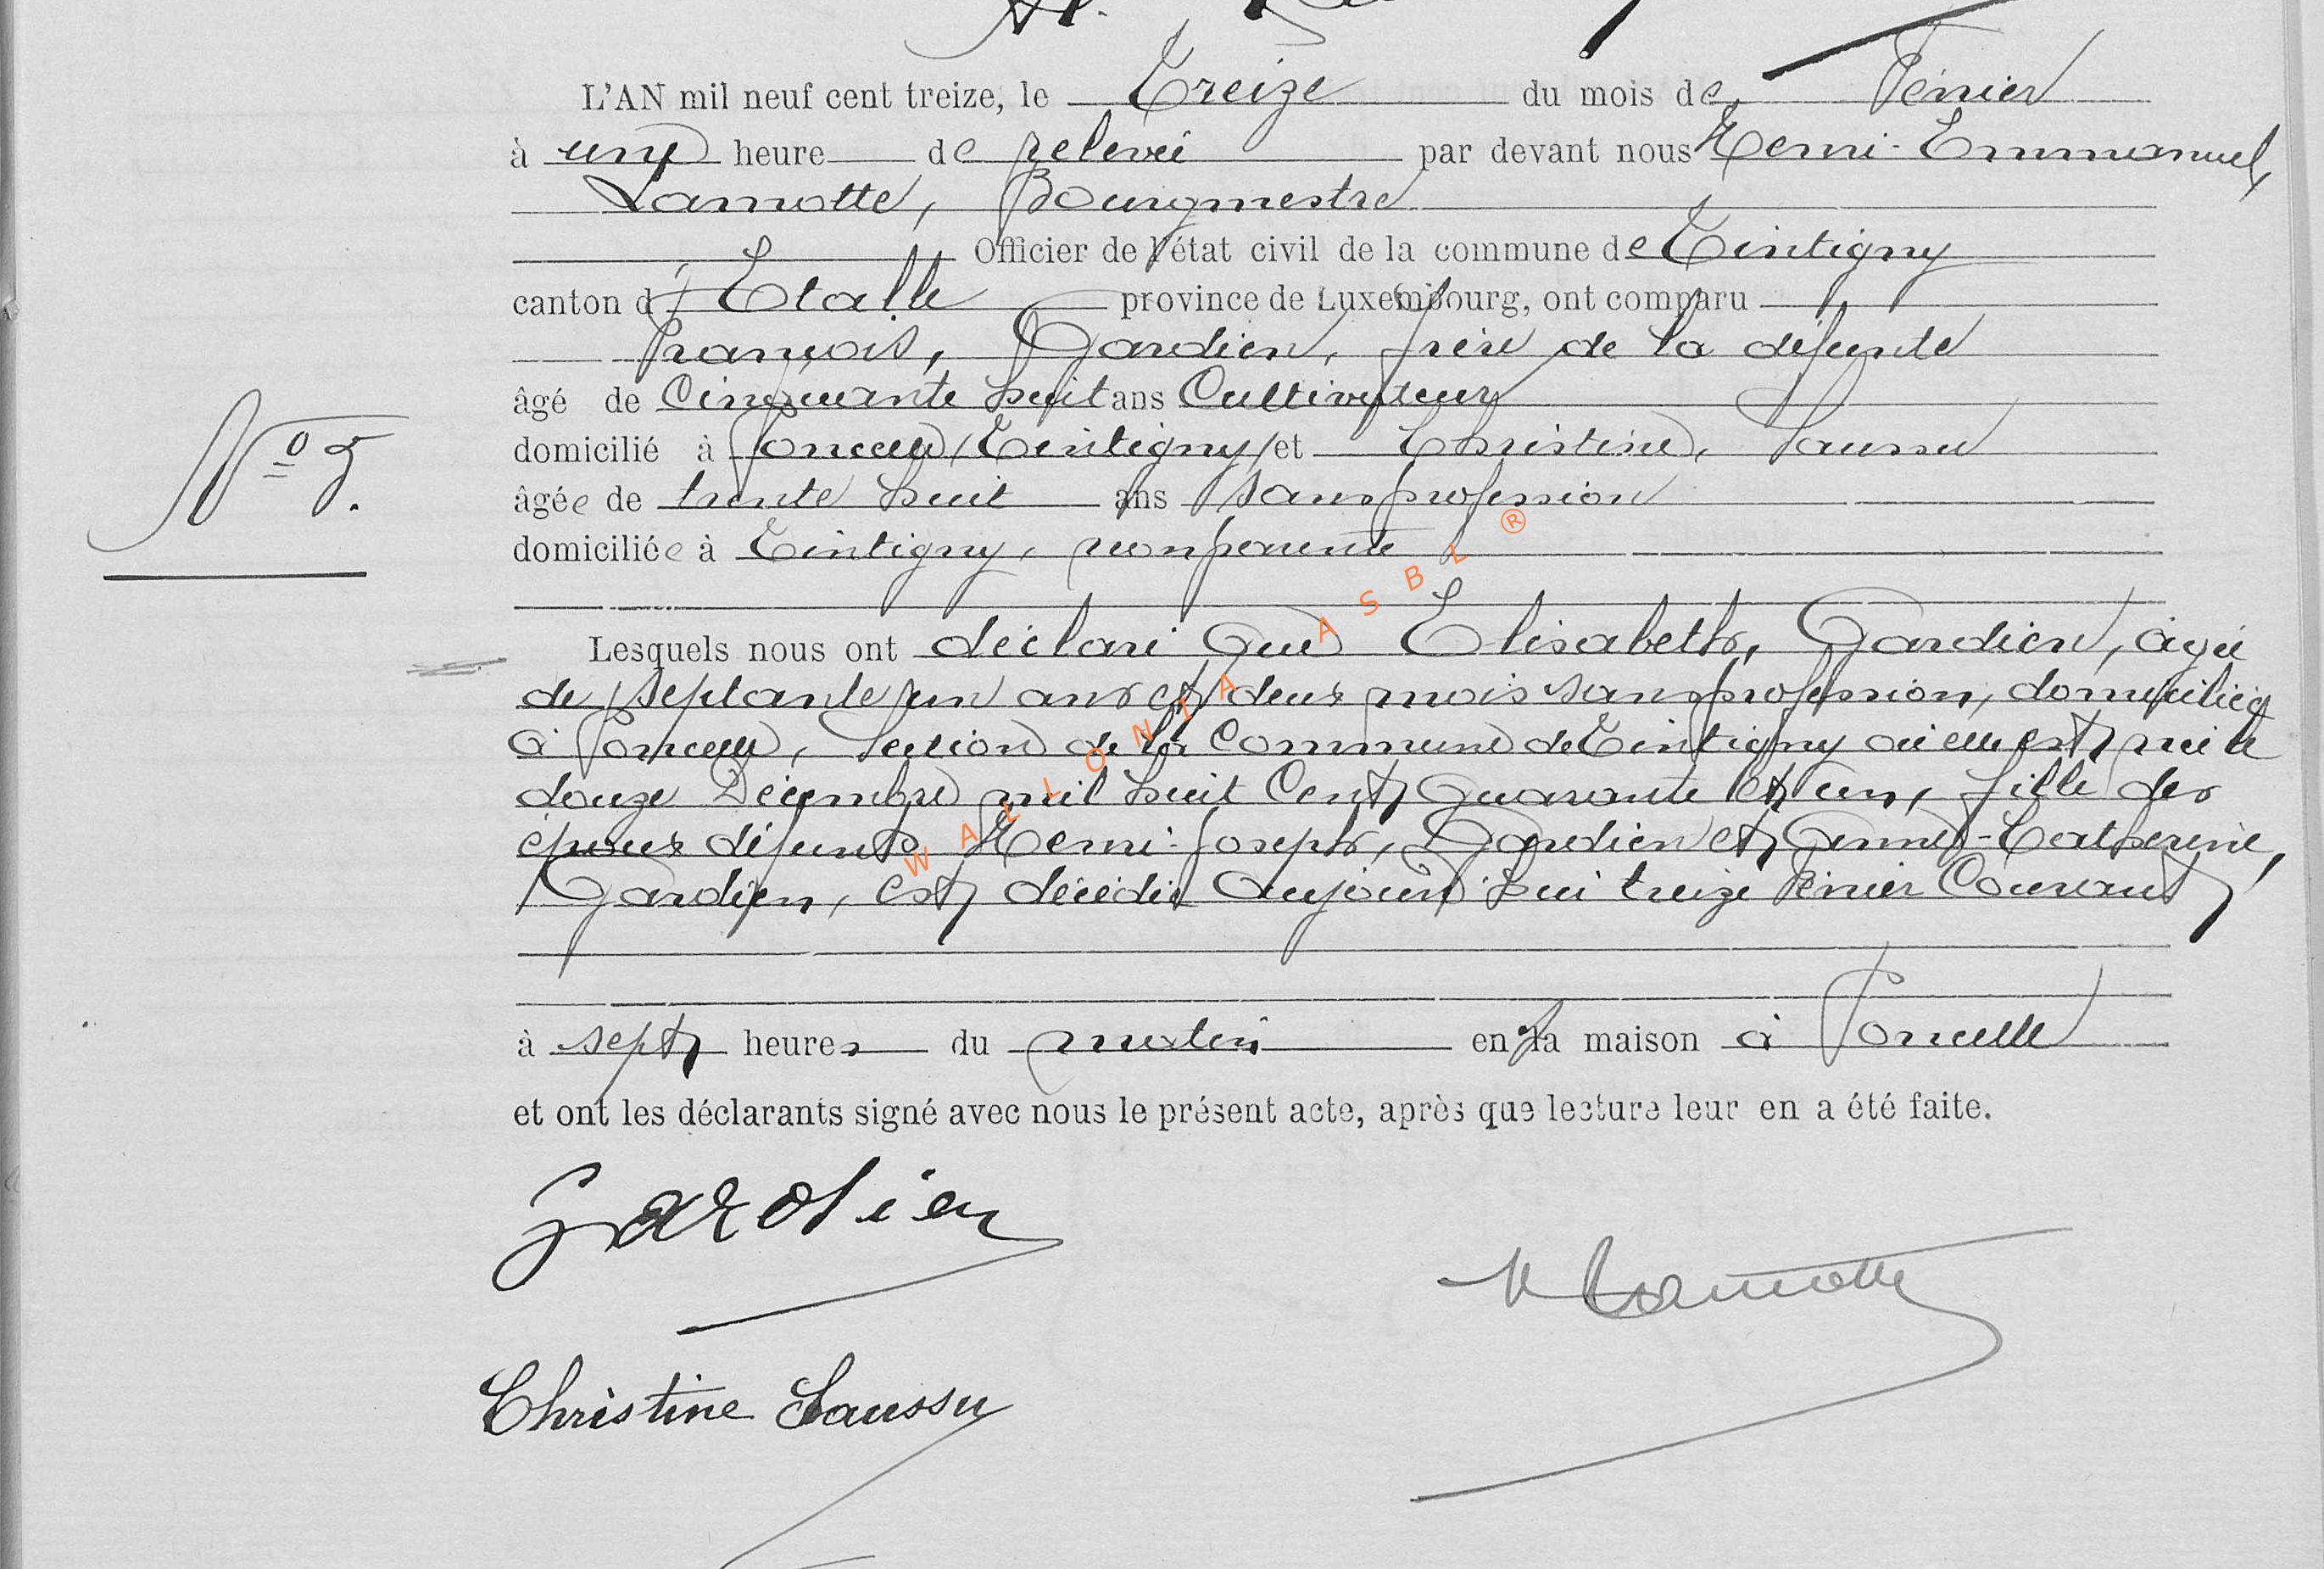 L'AN mil neuf cent treize, le Treize du mois de Février
à une heure de relevée par devant nous Henri-Emmanuel,
Lamotte, Bourgmestre
Officier de l'état civil de la commune de Tintigny
canton d'Etalle province de Luxembourg, ont comparu
François, Gardien, frère de la défunte
âgé de Cinquante huit ans Cultivateur
domicilié à Poncelle (Tintigny) et Christine, Saussu
N° 5.
âgée de trente huit ans sans profession
domiciliée à Tintigny, non parente
Lesquels nous ont déclaré que Elisabeth, Gardien, âgée
de septante un ans et deux mois sans profession, domiciliée
à Poncelle, section de la Commune de Tintigny où elle est née le
douze Décembre mil huit Cent Quarante et un, fille des
époux défunts Henri-Joseph, Gardien et Anne-Catherine,
Gardien, est décédée Aujourd'hui treize Février Courant,
à sept heures du matin en sa maison à Poncelle
et ont les déclarants signé avec nous le présent acte, après que lecture leur en a été faite.
Gardien
H Lamotte
Christine Saussu
WALLONIA ASBL ®